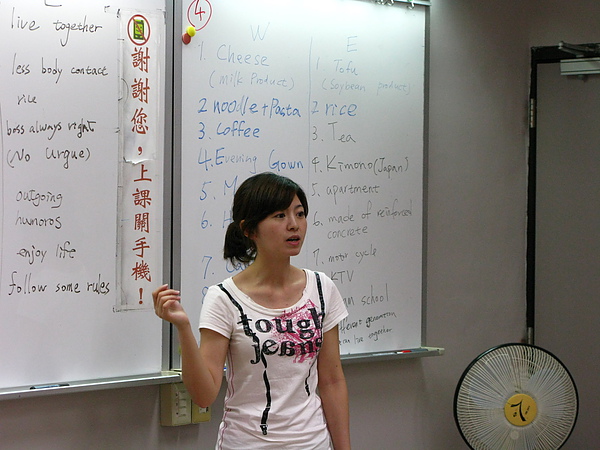 live together
less body contact
rice
boss always right
(No Urgue)
outgoing
humoros
enjoy life
follow some rules
謝謝您，上課關手機！
4
W
1. Cheese
(milk Product)
2 noodle + Pasta
3. Coffee
4. Evening Gown
5. M
6. H
7.
E
1. Tofu
(Soybean products)
2 rice
3. Tea
4. Kimono (Japan)
5. apartment
6. made of reinforced
concrete
7. motor cycle
KTV
school
different generation
live together
tough
jeans